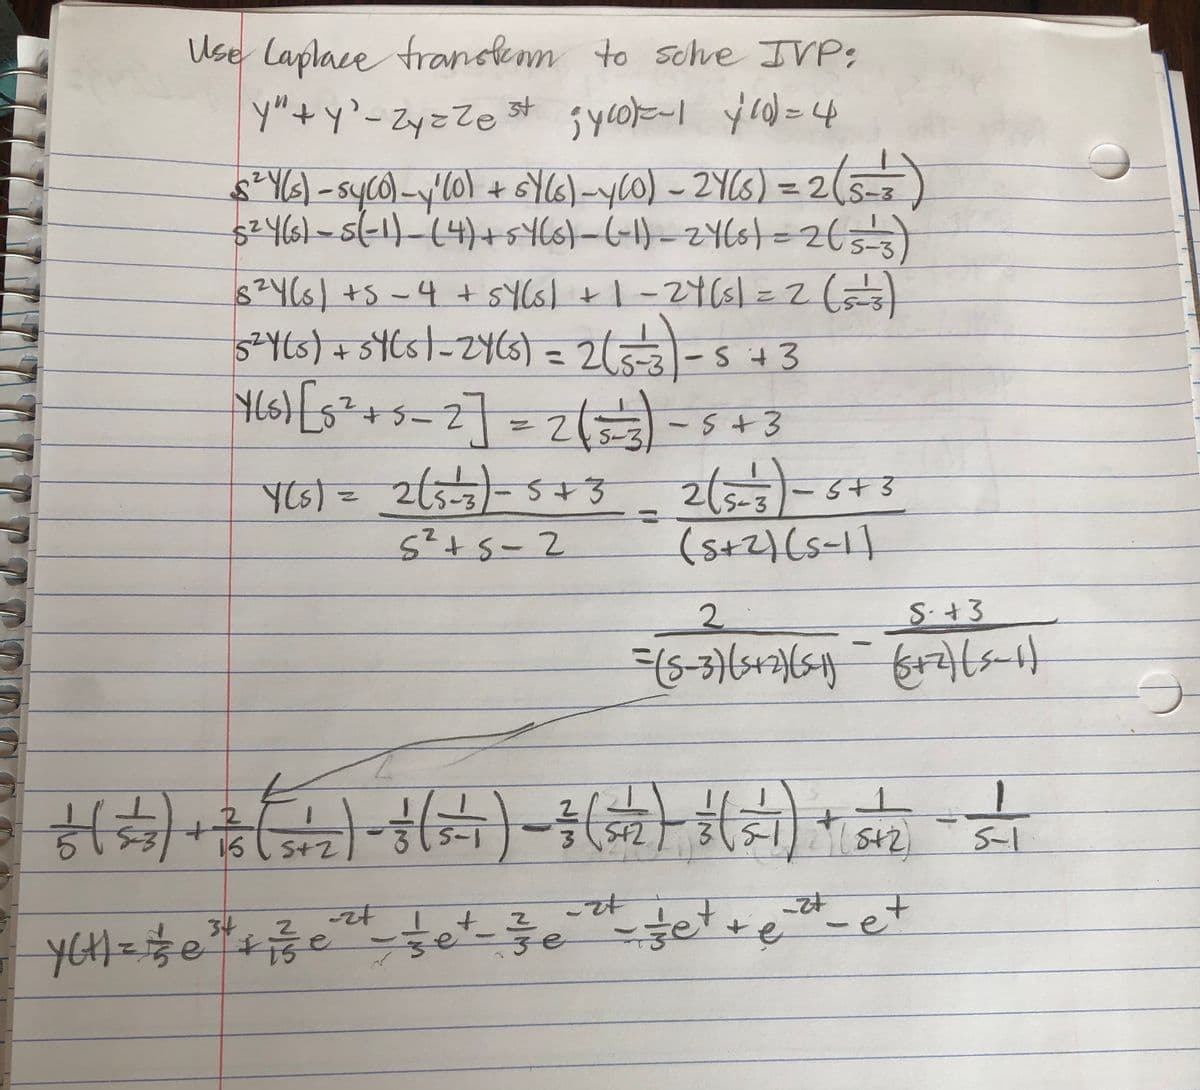 Use Laplace transform to solve IVP:
y"+y'-2y=2e^3t ; y(0)=-1 y'(0)=4
s²Y(s) - sy(0) - y'(0) + sY(s) - y(0) - 2Y(s) = 2(1/(s-3))
s²Y(s) - s(-1) - (4) + sY(s) - (-1) - 2Y(s) = 2(1/(s-3))
s²Y(s) + s - 4 + sY(s) + 1 - 2Y(s) = 2(1/(s-3))
s²Y(s) + sY(s) - 2Y(s) = 2(1/(s-3)) - s + 3
Y(s)[s² + s - 2] = 2(1/(s-3)) - s + 3
Y(s) = (2(1/(s-3)) - s + 3)/(s² + s - 2) = (2(1/(s-3)) - s + 3)/((s+2)(s-1))
= 2/((s-3)(s+2)(s-1)) - (s+3)/((s+2)(s-1))
1/5(1/(s-3)) + 2/15(1/(s+2)) - 1/3(1/(s-1)) - 2/3(1/(s+2)) - 1/3(1/(s-1)) + 1/(s+2) - 1/(s-1)
y(t) = 1/5 e^3t + 2/15 e^-2t - 1/3 e^t - 2/3 e^-2t - 1/3 e^t + e^-2t - e^t